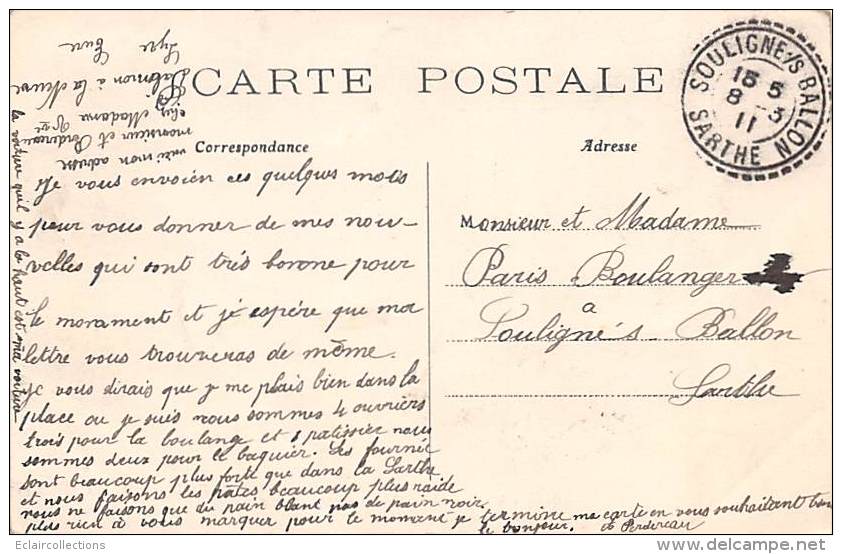 CARTE POSTALE
Correspondance
Adresse
SOULIGNE/S BALLON
15 5
8 - 3
11
SARTHE
Je vous envoien ces quelques mots
pour vous donner de mes nou-
velles qui sont très bonne pour
le morament et je espère que ma
lettre vous trouveras de même.
je vous dirais que je me plais bien dans la
place ou je suis nous sommes 4 ouvriers
trois pour la boulange et 1 patissier nous
sommes deux pour le baquier. Les fournée
sont beaucoup plus forte que dans la Sarthe
et nous faisons les pâtes beaucoup plus raide
nous ne faisons que du pain blanc pas de pain noir
plus rien à vous marquer pour le moment je termine ma carte en vous souhaitant bien
le bonjour. Perdereau
Monsieur et Madame
Paris Boulanger
a
Souligné s. Ballon
Sarthe
voici mon adresse
monsieur et Perdereau
chez Madame Vve
Salomon à la Neuve
Lyre Eure
la voiture qu'il y a la haut est ma voiture
Eclaircollections
www.delcampe.net